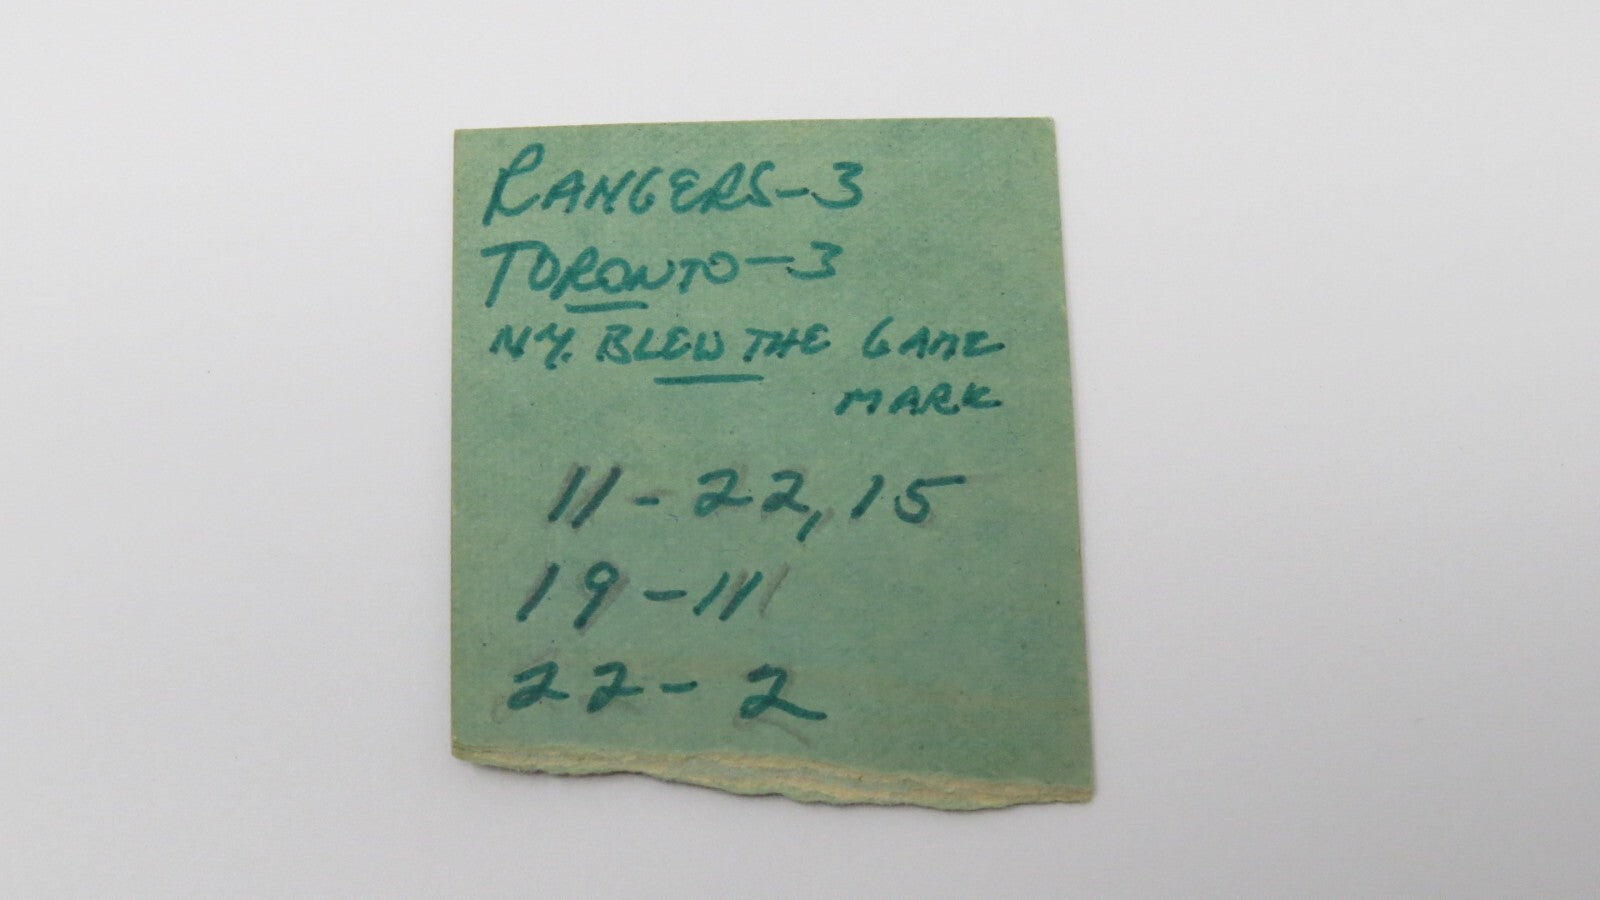 RANGERS-3
TORONTO-3
N.Y. BLEW THE GAME
MARK
11-22,15
19-11
22-2